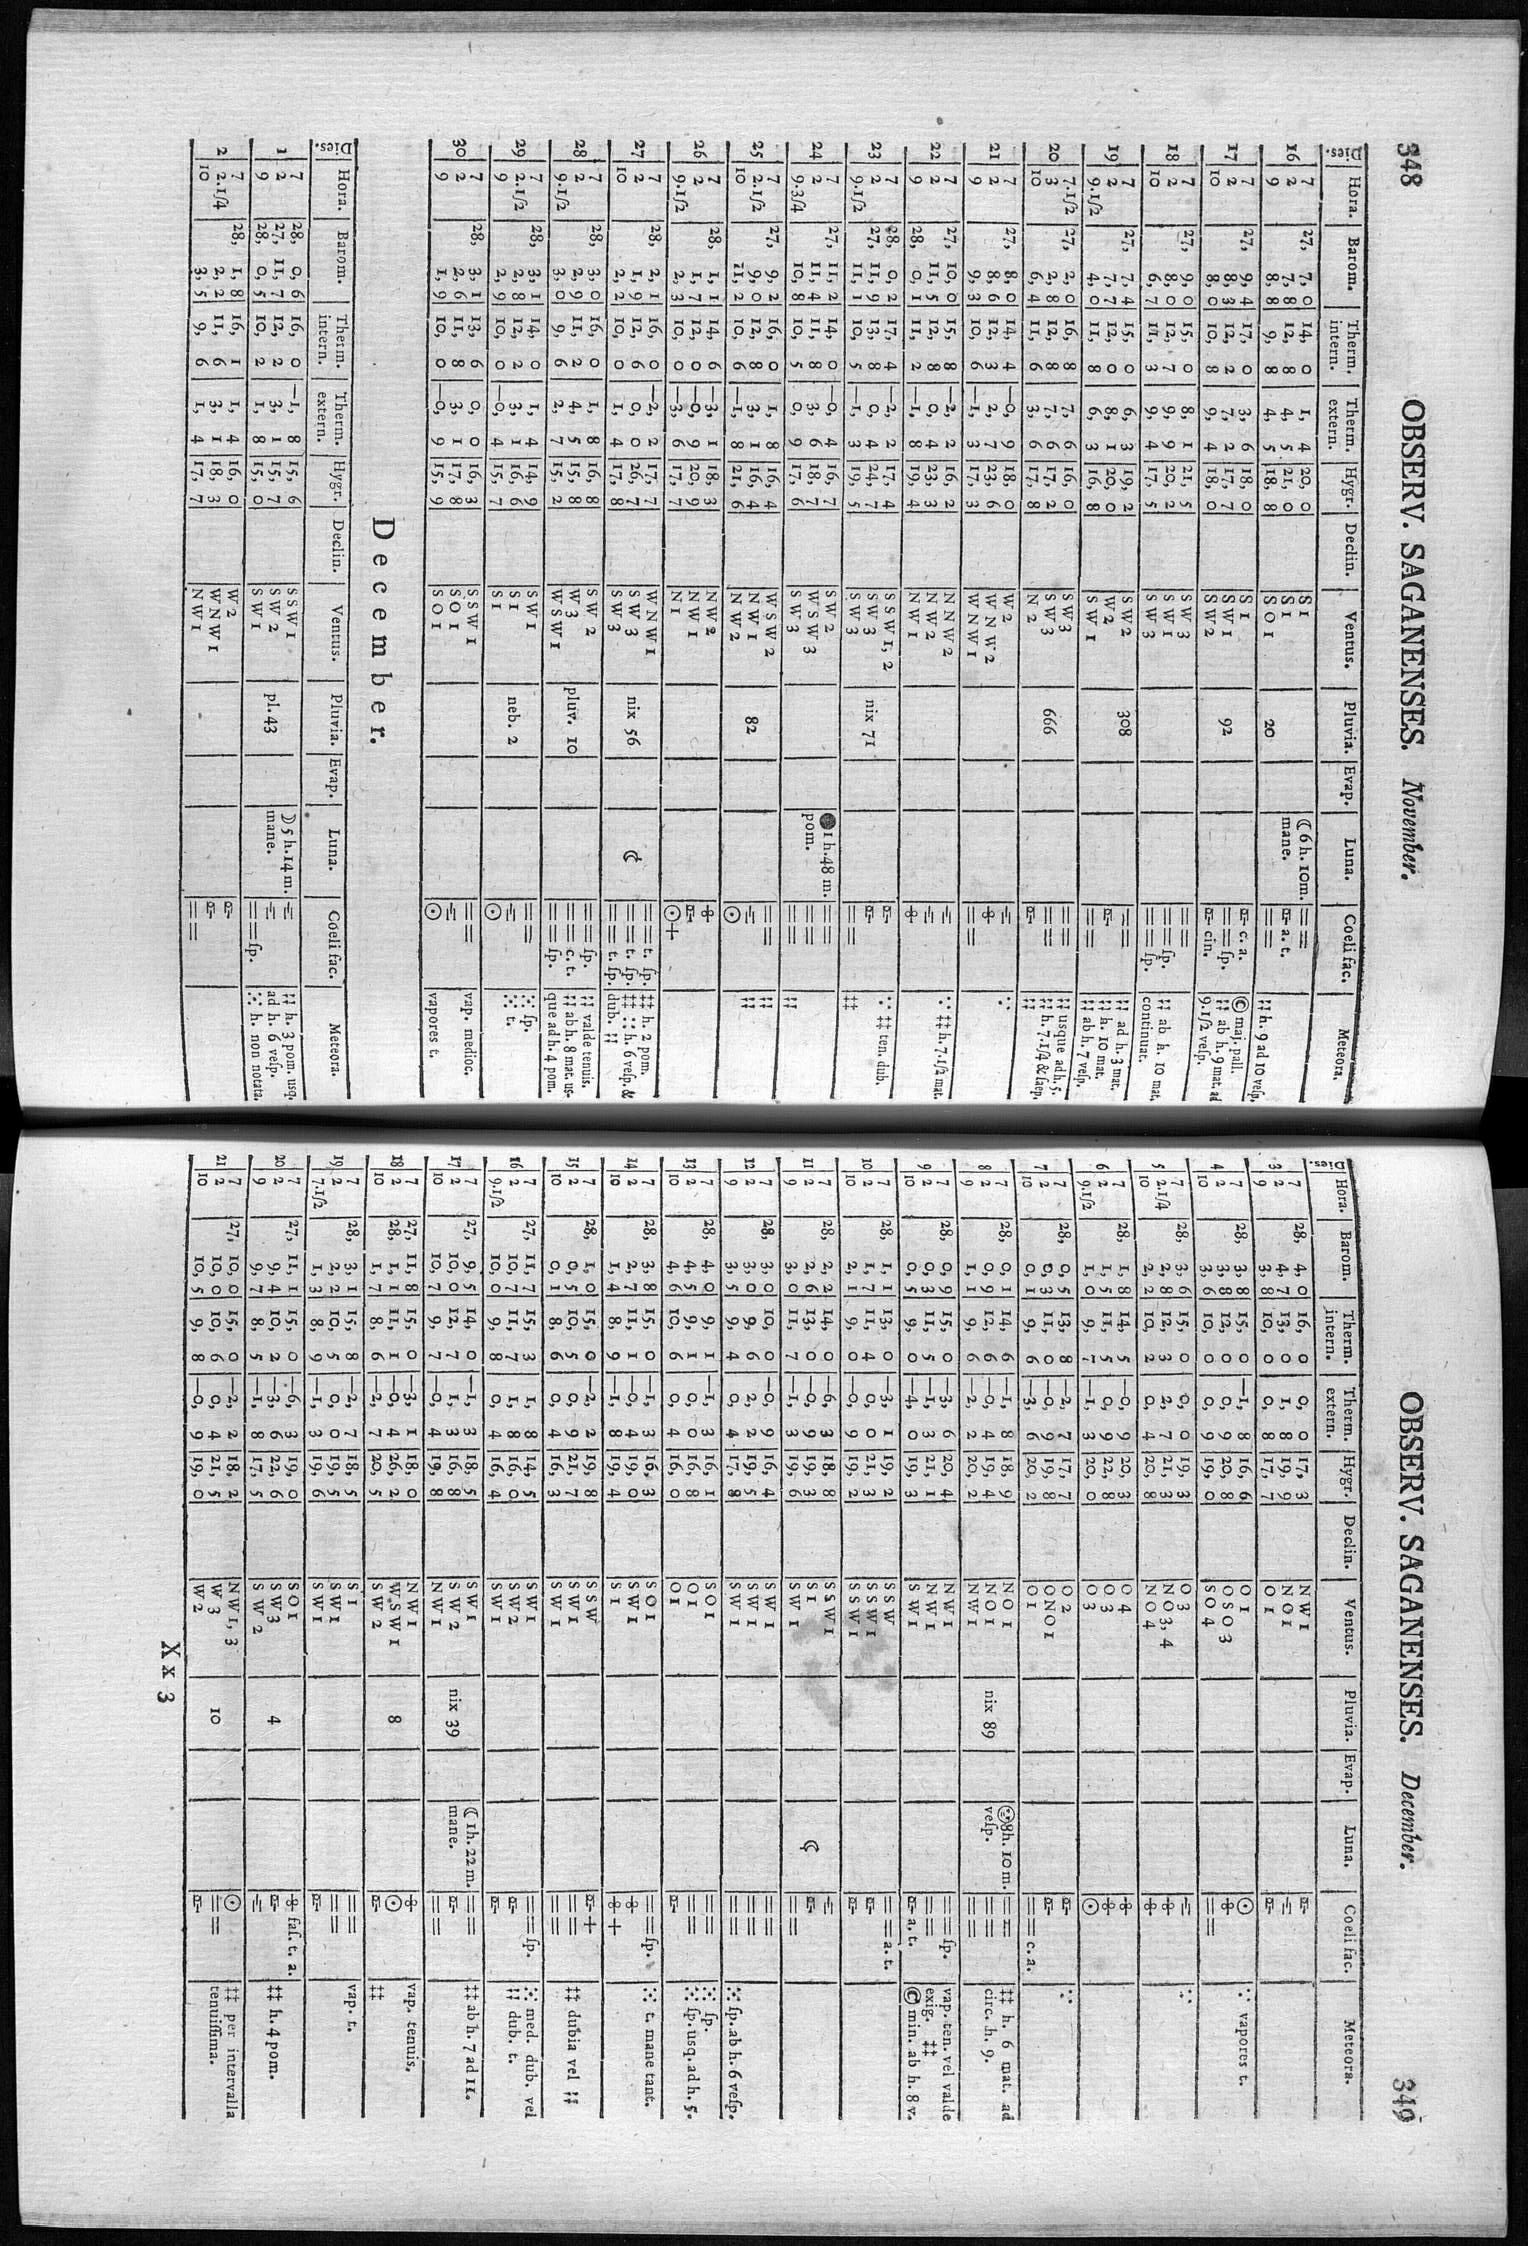 348 OBSERV. SAGANENSES. November.
Dies. Hora. Barom. Therm. intern. Therm. extern. Hygr. Declin. Ventus. Pluvia. Evap. Luna. Coeli fac. Meteora.
7 27, 7, 0 14, 0 1, 4 20, 0 S 1 ☾ 6 h. 10m. ==
16 2 7, 8 12, 8 4, 5 21, 0 S 1 mane. a. t.
9 8, 8 9, 8 4, 5 18, 8 S O 1 20 == h. 9 ad 10 veſp.
7 27, 9, 4 17, 0 3, 6 18, 0 S 1 c. a. maj. pall.
17 2 8, 3 12, 2 7, 2 17, 7 S W 1 92 == ſp. ab h. 9 mat. ad
10 8, 0 10, 8 9, 4 18, 0 S W 2 cin. 9.1/2 veſp.
7 27, 9, 0 15, 0 8, 1 21, 5 S W 3 ==
18 2 8, 0 12, 7 9, 9 20, 2 S W 1 == ſp. ab h. 10 mat.
10 6, 7 11, 3 9, 4 17, 5 S W 3 == ſp. continuat.
7 27, 7, 4 15, 0 6, 3 19, 2 S W 2 == ad h. 3 mat.
19 2 7, 7 12, 0 8, 1 20, 0 W 2 308 h. 10 mat.
9.1/2 4, 0 11, 8 6, 3 16, 8 S W 1 == ab h. 7 veſp.
7.1/2 27, 2, 0 16, 8 7, 6 16, 0 S W 3 == usque ad h. 5.
20 3 2, 8 12, 8 7, 6 17, 2 S W 3 666 == h. 7.1/4 & ſaep.
10 6, 4 11, 6 3, 6 17, 8 N 2
7 27, 8, 0 14, 4 —0, 9 18, 0 W 2
21 2 8, 6 12, 3 2, 7 23, 6 W N W 2
9 9, 3 10, 4 —1, 3 17, 3 W N W 1 ==
7 27, 10, 0 15, 8 —2, 2 16, 2 N N W 2 h. 7.1/2 mat.
22 2 11, 5 12, 8 0, 4 23, 3 N W 2
9 28, 0, 1 11, 2 —1, 8 19, 4 N W 1
7 28, 0, 2 17, 4 —2, 2 17, 4 S S W 1, 2 ten. dub.
23 2 27, 11, 9 13, 8 0, 4 24, 7 S W 3 nix 71
9.1/2 11, 1 10, 5 —1, 3 19, 5 S W 3 ==
7 27, 11, 2 14, 0 —0, 4 16, 7 S W 2 1 h. 48 m. ==
24 2 11, 4 11, 8 3, 6 18, 7 W S W 3 pom. ==
9.3/4 10, 8 10, 5 0, 9 17, 6 S W 3 ==
7 27, 9, 2 16, 0 1, 8 16, 4 W S W 2 ==
25 2.1/2 9, 0 12, 8 3, 1 16, 4 N W 1 82
10 11, 2 10, 6 —1, 8 21, 6 N W 2 ☉
7 28, 1, 1 14, 6 —3, 1 18, 3 N W 2
26 2 1, 7 12, 0 —0, 9 20, 9 N W 1
9.1/2 2, 3 10, 0 —3, 6 17, 7 N 1 ☉ +
7 28, 2, 1 16, 0 —2, 2 17, 7 W N W 1 == t. ſp. h. 2 pom.
27 2 1, 9 12, 6 0, 0 26, 7 S W 3 nix 56 ☾ == t. ſp. h. 6 veſp. &
10 2, 2 10, 0 1, 4 17, 8 S W 3 == t. ſp. dub.
7 28, 3, 0 16, 0 1, 8 16, 8 S W 2 == ſp. valde tenuis.
28 2 2, 9 11, 2 4, 5 15, 8 W 3 pluv. 10 == c. t. ab h. 8 mat. us-
9.1/2 3, 0 9, 6 2, 7 15, 2 W S W 1 == ſp. que ad h. 4 pom.
7 28, 3, 1 14, 0 1, 4 14, 9 S W 1 == ſp.
29 2.1/2 2, 8 12, 2 3, 1 16, 6 S 1 neb. 2 t.
9 2, 9 10, 0 —0, 4 15, 7 S 1 ☉
7 28, 3, 1 13, 6 0, 0 16, 3 S S W 1 == vap. medioc.
30 2 2, 6 11, 8 3, 1 17, 8 S O 1
9 1, 9 10, 0 —0, 9 15, 9 S O 1 ☉ vapores t.
December.
Dies. Hora. Barom. Therm. intern. Therm. extern. Hygr. Declin. Ventus. Pluvia. Evap. Luna. Coeli fac. Meteora.
7 28, 0, 6 16, 0 —1, 8 15, 6 S S W 1 ☽ 5 h. 14 m. h. 3 pom. usq.
1 2 27, 11, 7 12, 2 3, 1 15, 7 S W 2 pl. 43 mane. ad h. 6 veſp.
9 28, 0, 5 10, 2 1, 8 15, 0 S W 1 == ſp. h. non notata.
7 28, 1, 8 16, 1 1, 4 16, 0 W 2
2 2.1/4 2, 2 11, 6 3, 1 18, 3 W N W 1
10 3, 5 9, 6 1, 4 17, 7 N W 1 ==
OBSERV. SAGANENSES. December. 349
Dies. Hora. Barom. Therm. intern. Therm. extern. Hygr. Declin. Ventus. Pluvia. Evap. Luna. Coeli fac. Meteora.
7 28, 4, 0 16, 0 0, 0 17, 3 N W 1
3 2 4, 7 13, 0 1, 8 19, 9 N O 1
9 3, 8 10, 0 0, 8 17, 7 O 1
7 28, 3, 8 15, 0 —1, 8 16, 6 O 1 ☉ vapores t.
4 2 3, 8 12, 0 0, 9 20, 8 O S O 3
10 3, 6 10, 0 0, 9 19, 0 S O 4 ==
7 28, 3, 6 15, 0 0, 0 19, 3 O 3
5 2.1/4 2, 8 12, 3 2, 7 21, 3 N O 3, 4
10 2, 2 10, 2 0, 4 20, 8 N O 4
7 28, 1, 8 14, 5 —0, 9 20, 3 O 4
6 2 1, 5 11, 5 0, 9 22, 8 O 3
9.1/2 1, 0 9, 7 —1, 3 20, 0 O 3 ☉
7 28, 0, 5 13, 8 —2, 7 17, 7 O 2
7 2 0, 3 11, 0 —0, 9 19, 8 O N O 1
10 0, 1 9, 6 —3, 6 20, 2 O 1 == c. a.
7 28, 0, 1 14, 6 —1, 8 18, 9 N O 1 8h. 10 m. == h. 6 mat. ad
8 2 0, 9 12, 6 —0, 4 19, 4 N O 1 nix 89 veſp. == circ. h. 9.
9 1, 1 9, 6 —2, 2 20, 2 N W 1 ==
7 28, 0, 9 15, 0 —3, 6 20, 4 N W 1 == ſp. vap. ten. vel valde
9 2 0, 3 11, 5 —1, 3 21, 1 N W 1 == exig.
10 0, 5 9, 0 —4, 0 19, 3 S W 1 a. t. min. ab h. 8 v.
7 28, 1, 1 13, 0 —3, 1 19, 2 S S W == a. t.
10 2 1, 7 11, 4 0, 0 21, 3 S S W 1
10 2, 1 9, 0 —0, 9 19, 2 S S W 1
7 28, 2, 2 14, 0 —6, 3 18, 8 S S W 1
11 2 2, 6 13, 0 —0, 9 19, 3 S 1 ☾
9 3, 0 11, 7 —1, 3 19, 6 S W 1 ==
7 28, 3, 0 10, 0 —0, 9 16, 4 S W 1 ==
12 2 3, 0 9, 6 2, 2 19, 5 S W 1 ==
9 3, 5 9, 4 0, 4 17, 8 S W 1 == ſp. ab h. 6 veſp.
7 28, 4, 0 9, 1 —1, 3 16, 1 S O 1 == ſp.
13 2 4, 5 9, 1 0, 0 16, 8 O 1 == ſp. usq. ad h. 5.
10 4, 6 10, 6 0, 4 16, 0 O 1
7 28, 3, 8 15, 0 —1, 3 16, 3 S O 1 == ſp. t. mane tant.
14 2 2, 7 11, 1 0, 4 19, 0 S W 1
10 1, 4 8, 9 —1, 8 19, 4 S 1 +
7 28, 1, 0 15, 0 —2, 2 19, 8 S S W +
15 2 0, 5 10, 5 0, 9 21, 7 S W 1 == dubia vel
10 0, 1 8, 6 0, 4 16, 3 S W 1 ==
7 27, 11, 7 15, 3 1, 8 14, 5 S W 1 == ſp. med. dub. vel
16 2 10, 7 11, 7 1, 8 16, 0 S W 2 dub. t.
9.1/2 10, 0 9, 8 0, 4 16, 4 S W 1
7 27, 9, 5 14, 0 —1, 3 18, 5 S W 1 ☾ 1 h. 22 m. == ab h. 7 ad 11.
17 2 10, 0 12, 7 1, 3 16, 8 S W 2 nix 39 mane.
10 10, 7 9, 7 —0, 4 19, 8 N W 1 ==
7 27, 11, 8 15, 0 —3, 1 18, 0 N W 1 vap. tenuis.
18 2 28, 1, 1 11, 1 —0, 4 26, 2 W S W 1 8 ☉
10 1, 7 8, 6 —2, 7 20, 5 S W 2
7 28, 3, 1 15, 8 —2, 7 18, 5 S 1 == vap. t.
19 2 2, 2 10, 5 0, 0 19, 5 S W 1 ==
7.1/2 1, 3 8, 9 —1, 3 19, 6 S W 1
7 27, 11, 1 15, 0 —6, 3 19, 0 S O 1 faſ. t. a.
20 2 9, 4 10, 2 —3, 6 22, 6 S W 3 4 h. 4 pom.
9 9, 7 8, 5 —1, 8 17, 5 S W 2
7 27, 10, 0 15, 0 —2, 2 18, 2 N W 1, 3 ☉ per intervalla
21 2 10, 0 10, 6 0, 4 21, 5 W 3 10 == tenuiſſima.
10 10, 5 9, 8 —0, 9 19, 0 W 2
X x 3